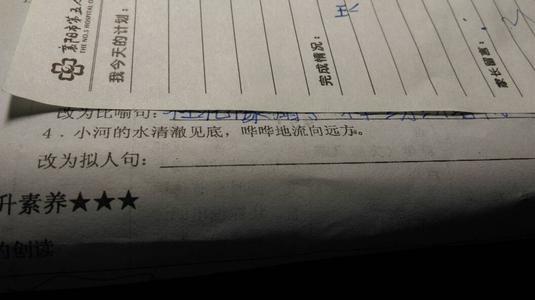 襄阳市第五人
THE NO.5 HOSPITAL O
我今天的计划:
完成情况:
家长留言:
改为比喻句:
4.小河的水清澈见底,哗哗地流向远方。
改为拟人句:
升素养★★★
的创读